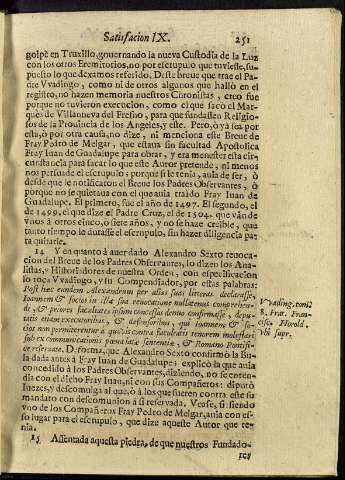 Satisfacion IX. 251
golpè en Truxillo, gouernando la nueva Custodia de la Luz
con los otros Eremitorios, no por escrupulo que tuviesse, su-
puesto lo que dexamos referido. Deste breve que trae el Pa-
dre Vvadingo, como ni de otros algunos que hallò en el
registro, no hazen memoria nuestros Cironistas, creo fue
porque no tuvieron execucion, como el que sacò el Mar-
quès de Villanueva del Fresno, para que fundassen Religio-
sos de la Provincia de los Angeles, y este. Pero, ò yà sea por
esta, ò por otra causa, no dize, ni menciona este Breve de
Fray Pedro de Melgar, que estava sin facultad Apostolica
Fray Iuan de Guadalupe para obrar, y era menester esta cir-
cunstancia para sacar lo que este Autor pretende, ni menos
nos persuade el escrupulo; porque si le tenia, aula de ser, ò
desde que le notificaron el Breve los Padres Observantes, ò
porque no se quietava con el que auia traido Fray Iuan de
Guadalupe. El primero, fue el año de 1497. El segundo, el
de 1499. el que dize el Padre Cruz, el de 1504. que ván de
vnos à otros cinco, ò siete años, y no se haze creible, que
tanto tiempo le durasse el escrupulo, sin hazer diligencia pa-
ra quitarle.
14 Y en quanto à auer dado Alexandro Sexto revoca-
cion del Breve de los Padres Observantes, lo dizen los Ana-
listas, y Historiadores de nuestra Orden, con especificacion
lo toca Vvadingo, y su Compendiador, por estas palabras:
Post hæc tandem Alexandrum per alias suas litteras declarasse,
Ioannem & socios in illa sua revocatione nullatenus comprehen-
di, & priores facultates ipsum concessas denuo confirmasse, depu-
tatis etiam executoribus, & defensoribus, qui Ioannem & so-
cios non permitterentur à quovis contra facultatis tenorem molestari
sub excommunicationis pœna latæ sententiæ, & Romano Pontifi-
ce reservatæ. De forma, que Alexandro Sexto confirmò la Bu-
la dada antes à Fray Iuan de Guadalupe: explicò la que auia
concedido à los Padres Observantes, diziendo, no se enten-
dia con el dicho Fray Iuan, ni con sus Compañeros: diputò
Iuezes, y descomulga al que, ò à los que fueren contra este su
mandato con descomunion à sì reservada. Vease, si siendo
vno de los Compañeros Fray Pedro de Melgar, auia con es-
so lugar para el escrupulo, que dize aqueste Autor que te-
nia.
15 Assentada aquesta piedra, de que nuestros Fundado-
res
Vvading. tom.
8. Frat. Fran-
cisc. Harold.
Vbi supr.